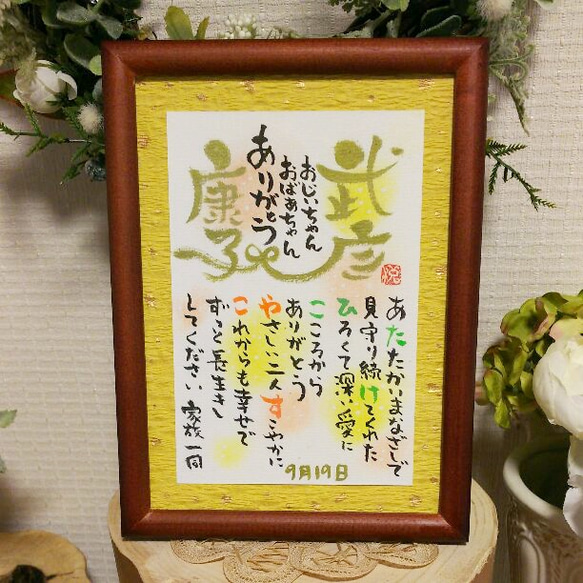 武彦
おじいちゃん
おばあちゃん
ありがとう
康子
あたたかいまなざしで
見守り続けてくれた
ひろくて深い愛に
こころから
ありがとう
やさしい二人すこやかに
これからも幸せで
ずっと長生きし
してください 家族一同
9月19日